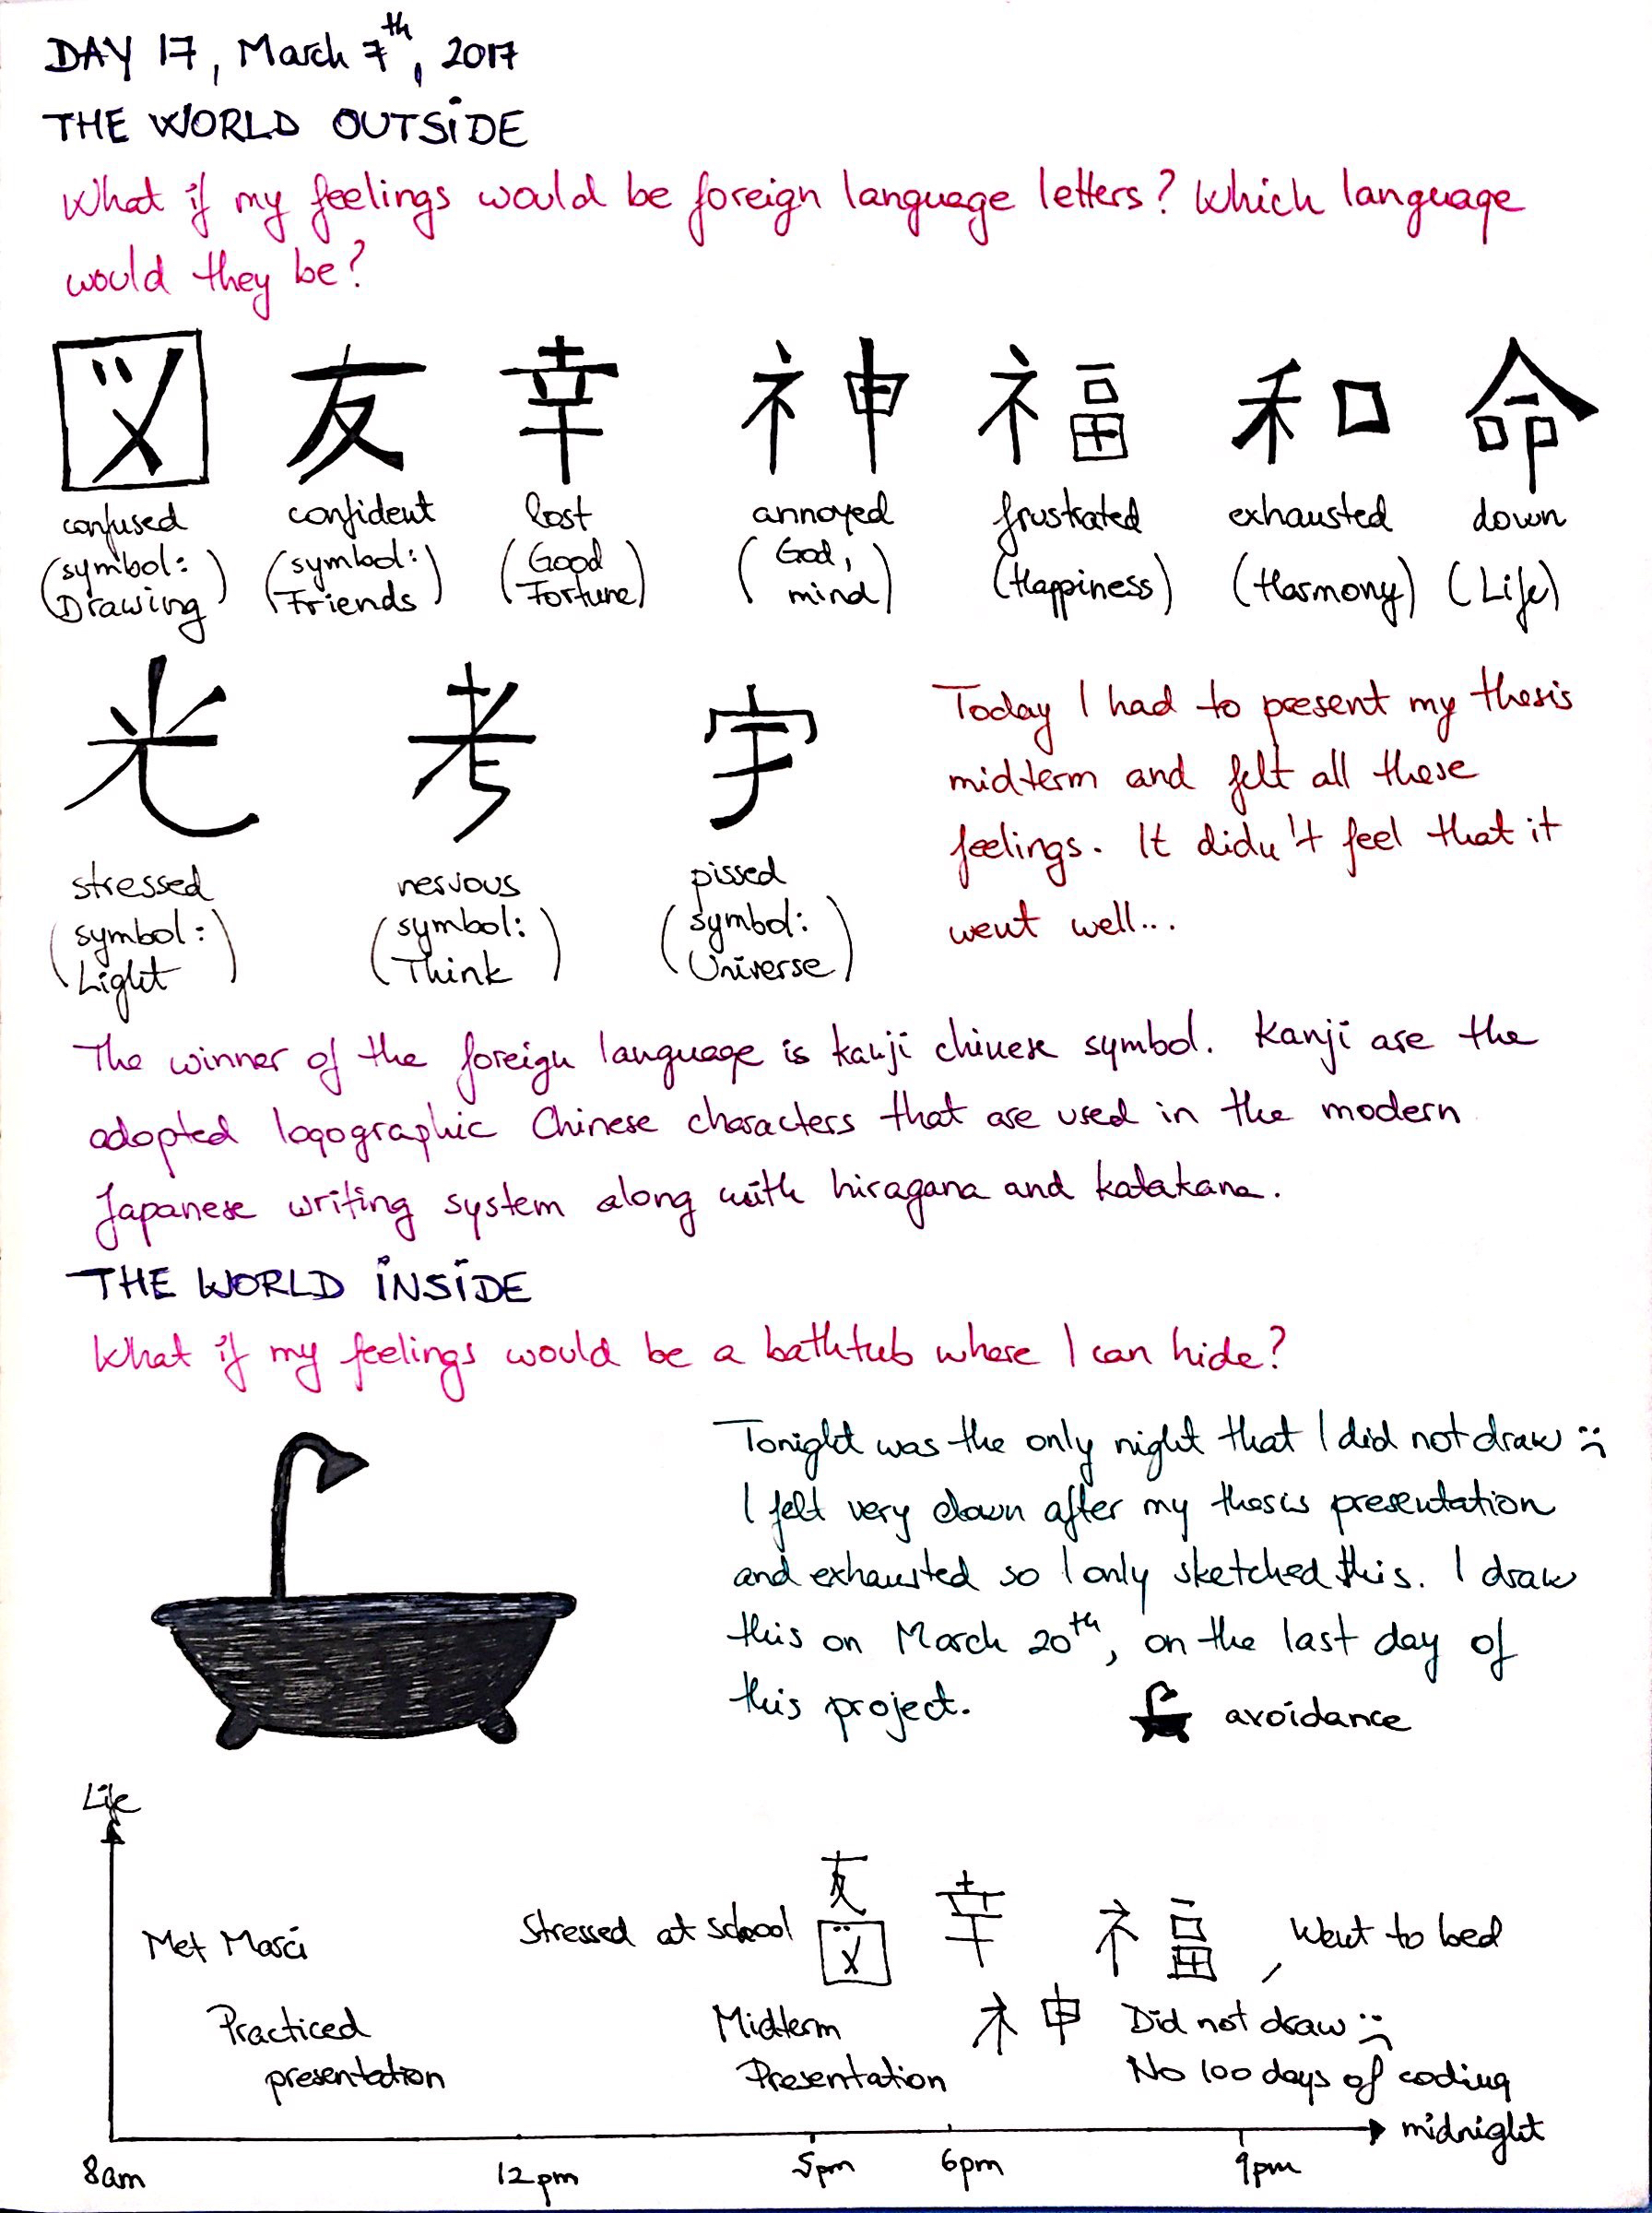 DAY 17, March 7th, 2017
THE WORLD OUTSIDE
What if my feelings would be foreign language letters? Which language
would they be?
図 友 幸 神 福 和 命
confused confident lost annoyed frustrated exhausted down
(symbol: Drawing) (symbol: Friends) (Good Fortune) (God, mind) (Happiness) (Harmony) (Life)
光 考 宇
stressed nervous pissed
(symbol: Light) (symbol: Think) (symbol: Universe)
Today I had to present my thesis
midterm and felt all these
feelings. It didn't feel that it
went well...
The winner of the foreign language is kanji chinese symbol. Kanji are the
adopted logographic Chinese characters that are used in the modern
Japanese writing system along with hiragana and katakana.
THE WORLD INSIDE
What if my feelings would be a bathtub where I can hide?
Tonight was the only night that I did not draw :(
I felt very down after my thesis presentation
and exhausted so I only sketched this. I draw
this on March 20th, on the last day of
this project.
avoidance
Life
友
Met Marci Stressed at school 図 幸 福, Went to bed
Practiced Midterm 神 Did not draw :(
presentation Presentation No 100 days of coding
midnight
8am 12pm 5pm 6pm 9pm